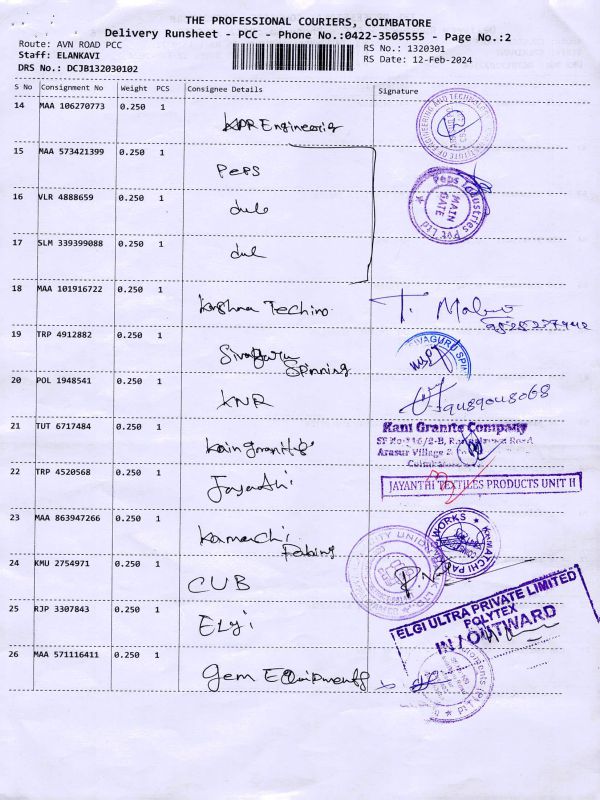 THE PROFESSIONAL COURIERS, COIMBATORE
Delivery Runsheet - PCC - Phone No.:0422-3505555 - Page No.:2
Route: AVN ROAD PCC
RS No.: 1320301
Staff: ELANKAVI
RS Date: 12-Feb-2024
DRS No.: DCJB132030102
S No Consignment No Weight PCS Consignee Details Signature
14 MAA 106270773 0.250 1 KPR Engineerig
INSTITUTE OF ENGINEERING AND TECHNOLOGY
15 MAA 573421399 0.250 1 Peps
Peps Industries Pvt Ltd
MAIN GATE
16 VLR 4888659 0.250 1
17 SLM 339399088 0.250 1
18 MAA 101916722 0.250 1 Krishna Techino T.
19 TRP 4912882 0.250 1 Sivaguru Spinning
SIVAGURU SPIN
20 POL 1948541 0.250 1 KNR
21 TUT 6717484 0.250 1
Kani Granite Company
SF No 116/2-B, Road
Arasur Village
22 TRP 4520568 0.250 1
JAYANTHI TEXTILES PRODUCTS UNIT II
23 MAA 863947266 0.250 1
24 KMU 2754971 0.250 1 CUB
CITY UNION
25 RJP 3307843 0.250 1 ELgi
ELGI ULTRA PRIVATE LIMITED
POLYTEX
IN / OUTWARD
26 MAA 571116411 0.250 1 Gem Equipments